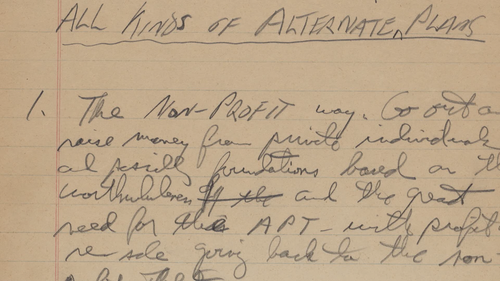 ALL KINDS OF ALTERNATE PLANS
1. The NON-PROFIT way. Go out a
raise money from private individuals
and possibly foundations based on th
worthwhileness of the and the great
need for the APT - with profit
re-sale going back to the non-